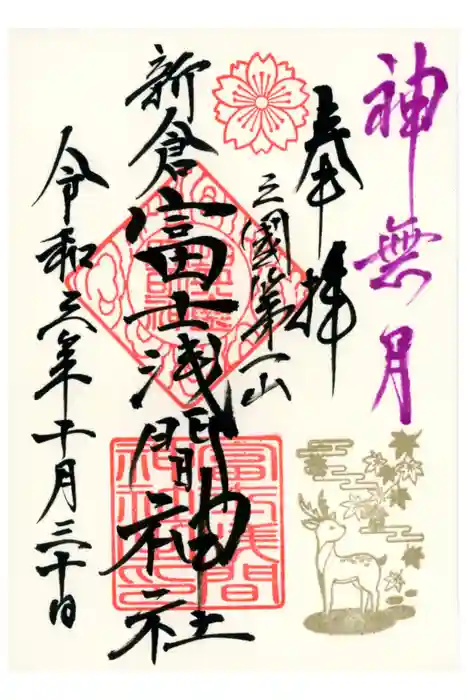 神無月
奉拝
三國第一山
新倉富士浅間神社
令和三年十月三十日